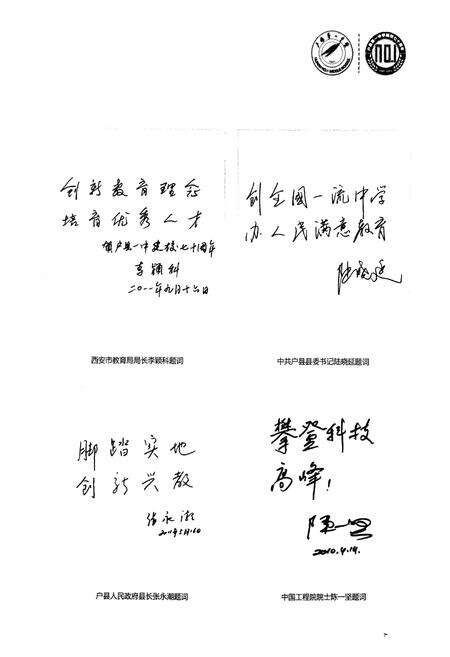 NO.1
创新教育理念
培育优秀人才
贺户县一中建校七十周年
李颖科
二〇一一年九月十六日
西安市教育局局长李颖科题词
创全國一流中学
办人民满意教育
陆晓延
中共户县县委书记陆晓延题词
脚踏实地
创新兴教
张永潮
户县人民政府县长张永潮题词
攀登科技
高峰!
陈一坚
2010.4.14.
中国工程院院士陈一坚题词